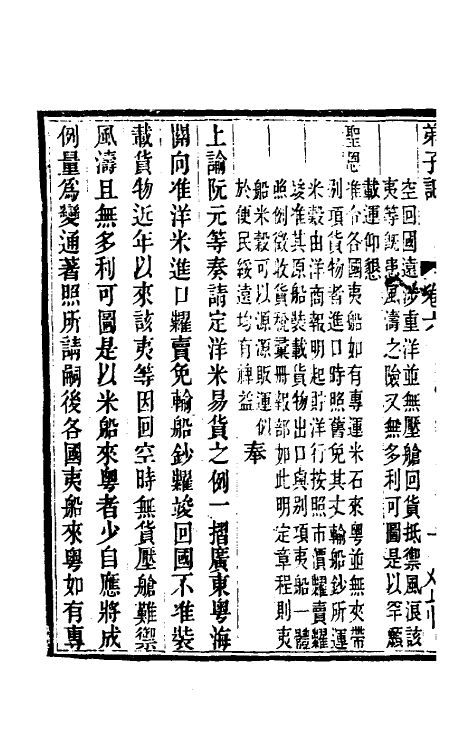 弟子記 卷六
空回國遠涉重洋並無壓艙回貨抵禦風浪該
夷等既患風濤之險又無多利可圖是以罕願
載運仰懇
聖恩准令各國夷船如有專運米石來粵並無夾帶
別項貨物者進口時照舊免其丈輸船鈔所運
米穀由洋商報明起貯洋行按照市價糶賣糶
竣准其原船裝載貨物出口與別項夷船一體
照例徵收貨稅彙冊報部如此明定章程則夷
船米穀可以源源販運似
於便民綏遠均有裨益 奉
上諭阮元等奏請定洋米易貨之例一摺廣東粵海
關向准洋米進口糶賣免輸船鈔糶竣回國不准裝
載貨物近年以來該夷等因回空時無貨壓艙難禦
風濤且無多利可圖是以米船來粵者少自應將成
例量為變通著照所請嗣後各國夷船來粵如有專